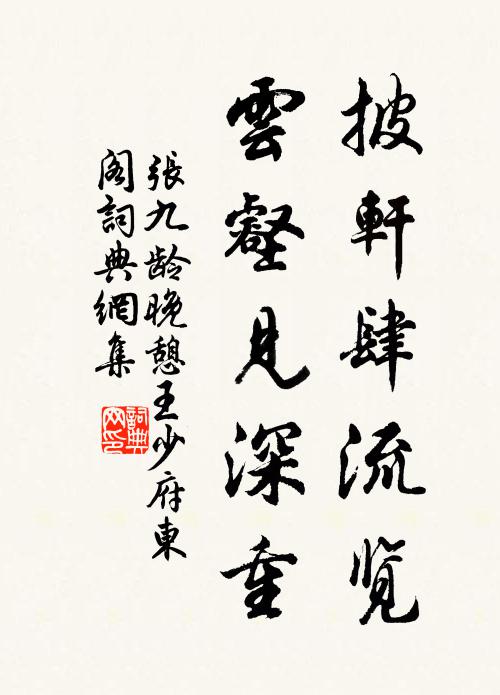 披軒肆流览
雲壑見深重
張九龄晚憩王少府東
閣詞典網集
詞典
网印